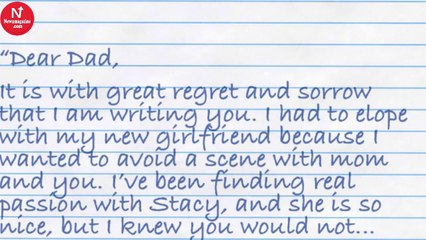 N
Newzmagazine
.com
“Dear Dad,
It is with great regret and sorrow
that I am writing you. I had to elope
with my new girlfriend because I
wanted to avoid a scene with mom
and you. I’ve been finding real
passion with Stacy, and she is so
nice, but I knew you would not...